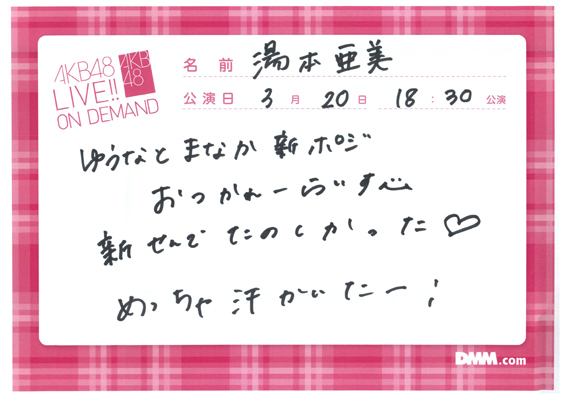 AKB48
LIVE!!
ON DEMAND
AKB
48
名前 湯本亜美
公演日 3月20日 18:30公演
ゆうなと まなか 新ポジ
おつかれーらいす
新せんで たのしかった♡
めっちゃ汗かいたー!
DMM.com